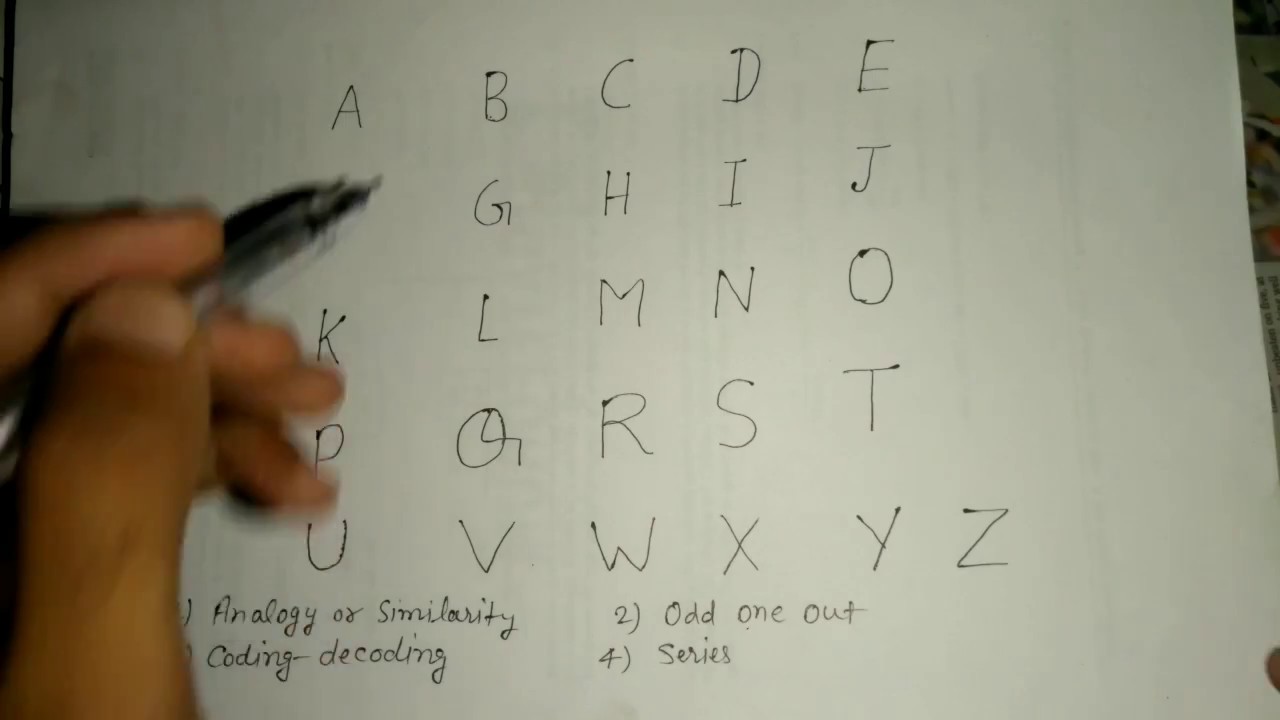 A B C D E
G H I J
K L M N O
P Q R S T
U V W X Y Z
) Analogy or Similarity 2) Odd one out
) Coding-decoding 4) Series